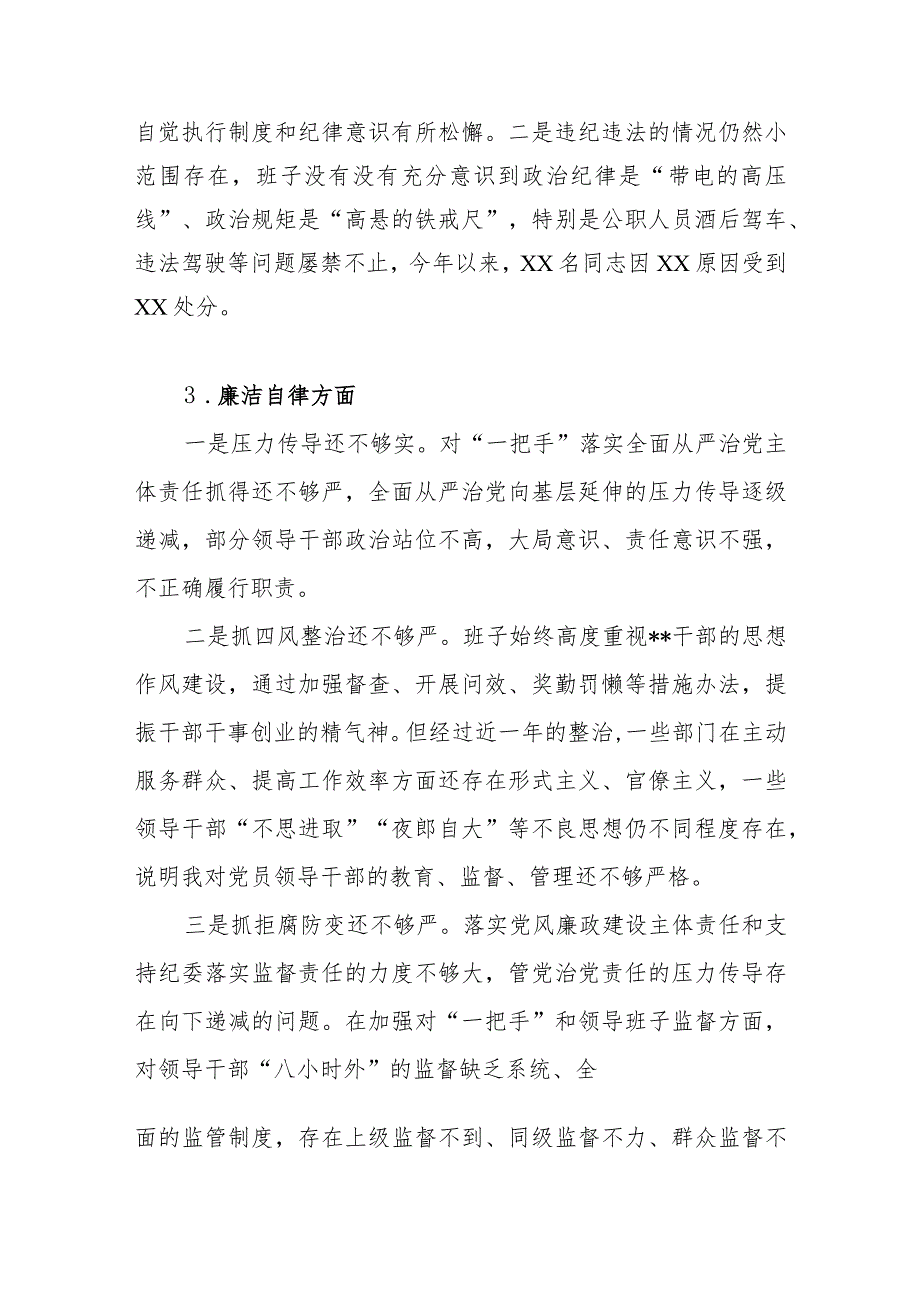 自觉执行制度和纪律意识有所松懈。二是违纪违法的情况仍然小
范围存在，班子没有没有充分意识到政治纪律是“带电的高压
线”、政治规矩是“高悬的铁戒尺”，特别是公职人员酒后驾车、
违法驾驶等问题屡禁不止，今年以来，XX 名同志因 XX 原因受到
XX 处分。
3.廉洁自律方面
一是压力传导还不够实。对“一把手”落实全面从严治党主
体责任抓得还不够严，全面从严治党向基层延伸的压力传导逐级
递减，部分领导干部政治站位不高，大局意识、责任意识不强，
不正确履行职责。
二是抓四风整治还不够严。班子始终高度重视**干部的思想
作风建设，通过加强督查、开展问效、奖勤罚懒等措施办法，提
振干部干事创业的精气神。但经过近一年的整治,一些部门在主动
服务群众、提高工作效率方面还存在形式主义、官僚主义，一些
领导干部“不思进取”“夜郎自大”等不良思想仍不同程度存在，
说明我对党员领导干部的教育、监督、管理还不够严格。
三是抓拒腐防变还不够严。落实党风廉政建设主体责任和支
持纪委落实监督责任的力度不够大，管党治党责任的压力传导存
在向下递减的问题。在加强对“一把手”和领导班子监督方面，
对领导干部“八小时外”的监督缺乏系统、全
面的监管制度，存在上级监督不到、同级监督不力、群众监督不